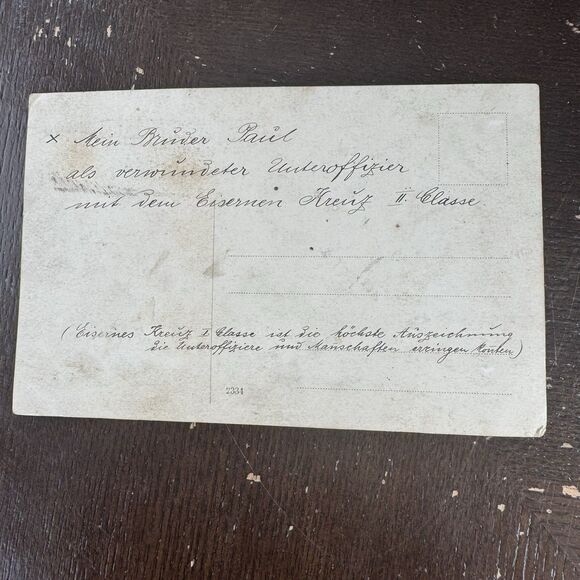 x Mein Bruder Paul
als verwundeter Unteroffizier
mit dem Eisernen Kreuz II. Classe.
(Eisernes Kreuz I Classe ist die höchste Auszeichnung
die Unteroffiziere und Manschaften erringen konten)
2334